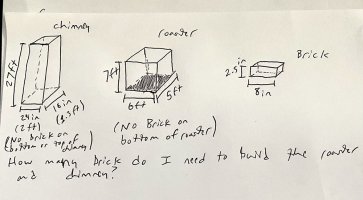 chimney
roaster
Brick
27ft
7ft
2.5in
24in
(2ft)
16in
6ft
5ft
8in
(No Brick on
bottom or top of
chimney)
(No Brick on
bottom of roaster)
How many brick do I need to build the roaster
and chimney?